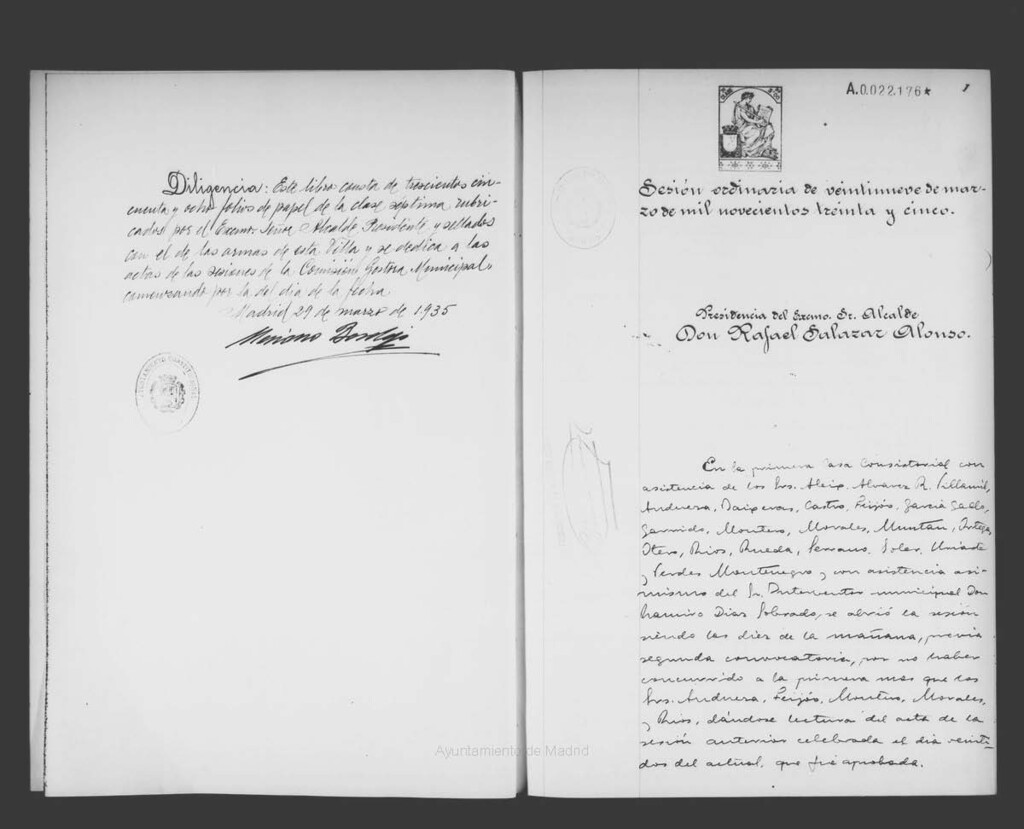 Diligencia: Este libro consta de trescientos cin-
cuenta y ocho folios de papel de la clase septima rubri-
cados por el Excmo. Señor Alcalde Presidente y sellados
con el de las armas de esta Villa y se dedica a las
actas de las sesiones de la Comisión Gestora Municipal
comenzando por la del dia de la fecha.
Madrid 29 de marzo de 1935
A.0.022.176*
1
Sesión ordinaria de veintinueve de mar-
zo de mil novecientos treinta y cinco.
Presidencia del Excmo. Sr. Alcalde
Don Rafael Salazar Alonso.
En la primera Casa Consistorial con
asistencia de los Srs. Aleix, Alvarez R. Villamil,
Andueza, Baixeras, Castro, Feijóo, García Gallo,
Garrido, Montero, Morales, Muntan, Ortega,
Otero, Rios, Rueda, Serrano, Soler, Uriarte
y Verdes Montenegro y con asistencia asi-
mismo del Sr. Interventor municipal Don
Ramiro Dias Sobrado, se abrió la sesión
siendo las diez de la mañana, previa
segunda convocatoria, por no haber
concurrido a la primera mas que los
Srs. Andueza, Feijóo, Montero, Morales,
y Rios, dándose lectura del acta de la
sesión anterior celebrada el dia veinti-
dos del actual, que fué aprobada.
Ayuntamiento de Madrid